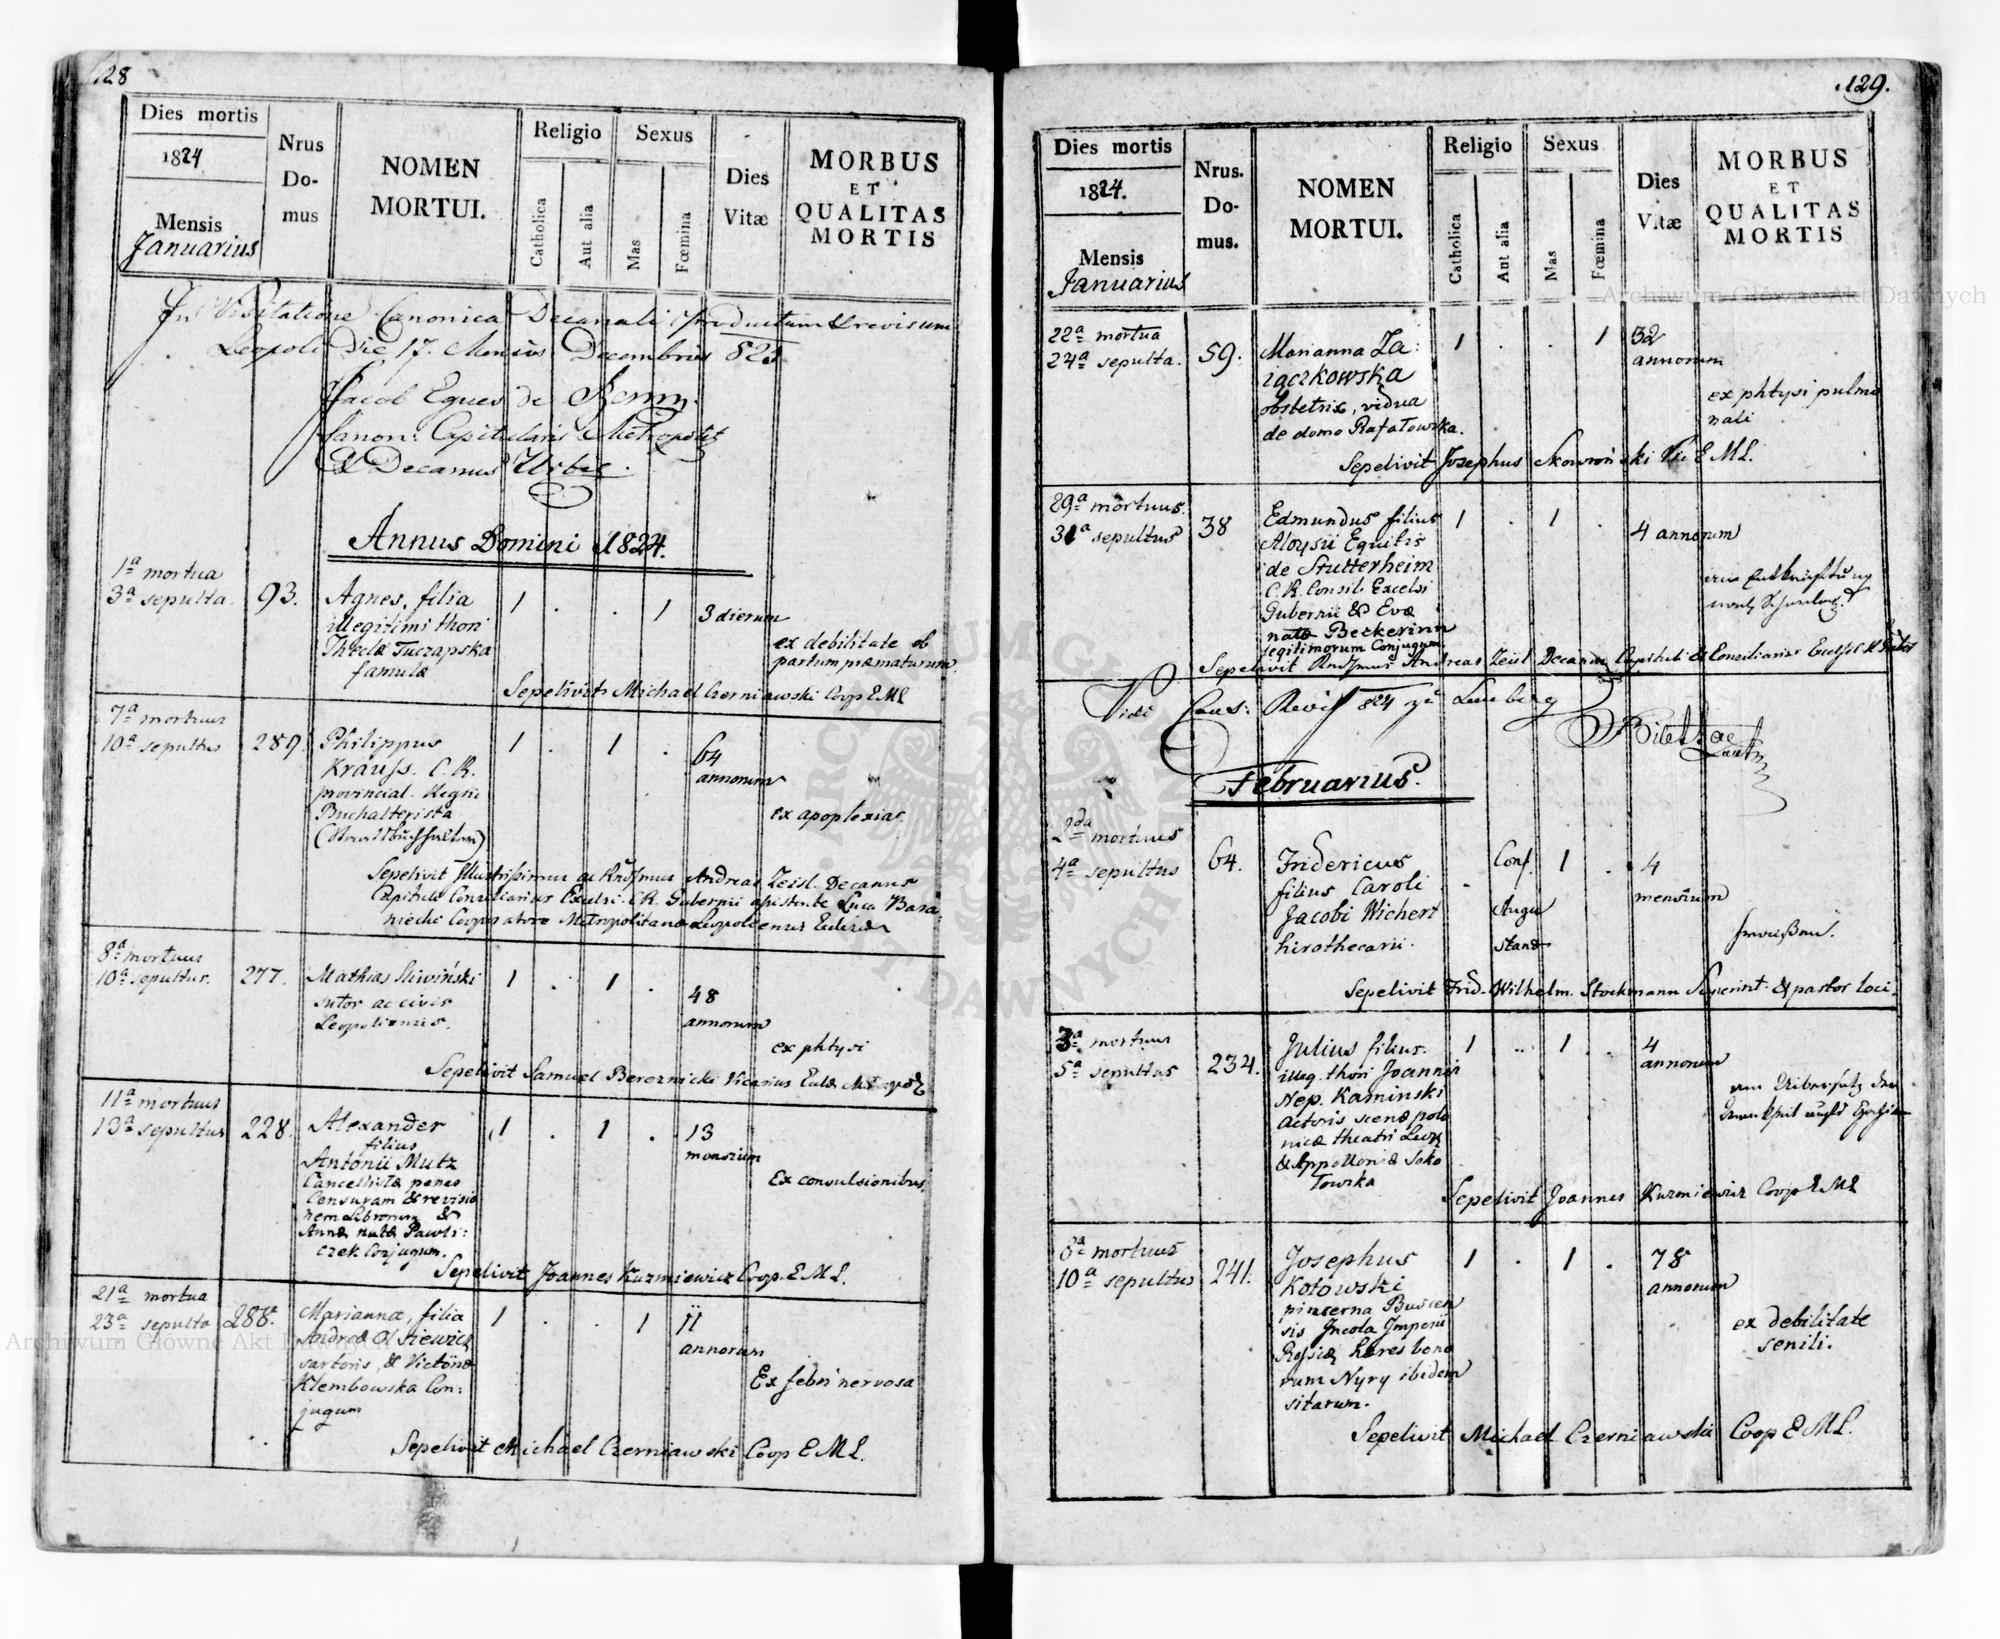 128
Dies mortis
1824
Mensis
Januarius
Nrus
Do-
mus
NOMEN
MORTUI.
Religio
Catholica
Aut alia
Sexus
Mas
Fœmina
Dies
Vitæ
MORBUS
ET
QUALITAS
MORTIS
In Visitatione Canonica Decanali productum & revisum
Leopoli Die 17. Mensis Decembris 825
Jacob Eques de
Canon: Capitularis Metropolit
& Decanus Urbis.
Annus Domini 1824.
1ª mortua
3ª sepulta.
93.
Agnes, filia
illegitimi thori
Theclæ Tuczapska
famulæ
1 . . 1
3 dierum
ex debilitate ob
partum præmaturum
Sepelivit Michael Czerniawski Coop E M L
7ª mortuus
10ª sepultus
289.
Philippus
Krauss. C. R.
provincial. Regni
Buchalterista
1 . 1 .
64
annorum
ex apoplexia
Sepelivit Illustrissimus ac Rndssmus Andreas Zeisl Decanus
Capituli Consiliarius Excelsi C.R. Gubernii assistente Luca Bara
niecki Cooperatore Metropolitanæ Leopoliensis Ecclesiæ
8ª mortuus
10ª sepultus.
277.
Mathias Sliwiński
sutor ac civis
Leopoliensis.
1 . 1 .
48
annorum
ex phtysi
Sepelivit Samuel Bereznicki Vicarius Eccle
11ª mortuus
13ª sepultus
228.
Alexander
filius
Antonii Mutz
Cancellistæ penes
Censuram & revisio
nem Librorum &
Annæ natæ Pawli:
czek Conjugum.
1 . 1 .
13
mensium
Ex convulsionibus.
Sepelivit Joannes Kuzmiewicz Coop. E M L.
21ª mortua
23ª sepulta
288ª
Marianna, filia
Andreæ
sartoris, & Victoriæ
Klembowska Con:
jugum
1 . . 1
11
annorum
Ex febri nervosa
Sepelivit Michael Czerniawski Coop E M L.
129.
Dies mortis
1824.
Mensis
Januarius
Nrus.
Do-
mus.
NOMEN
MORTUI.
Religio
Catholica
Aut alia
Sexus
Mas
Fœmina
Dies
Vitæ
MORBUS
ET
QUALITAS
MORTIS
22ª mortua
24ª sepulta.
59.
Marianna Za:
iączkowska
obstetrix, vidua
de domo Rafałowska.
1 . . 1
32
annorum
ex phtysi pulmo
nali
Sepelivit Josephus Skowroński Vic E M L.
29ª mortuus.
31ª sepultus
38
Edmundus filius
Aloysii Equitis
de Stutterheim
C. R. Consil. Excelsi
Gubernii & Evæ
natæ Beckerinn
legitimorum Conjugum.
1 . 1 .
4 annorum
Sepelivit Rndssmus Andreas Zeisl Decanus Capituli & Consiliarius Excelsi
Vidi
Februarius.
2da mortuus
4ª sepultus
64.
Fridericus
filius Caroli
Jacobi Wichert
hirothecarii.
. Conf.
Augu
stanæ
1 .
4
mensium
Sepelivit Frid. Wilhelm. Stockmann Superint. & pastor loci.
3ª mortuus
5ª sepultus
234.
Julius filius.
illeg. thori Joannis
Nep. Kaminski
actoris scenæ polo
nicæ theatri Leop
& Appolloniæ Soko
łowska
1 . 1 .
4
annorum
Sepelivit Joannes Kuzmiewicz Coop E M L
8ª mortuus
10ª sepultus
241.
Josephus
Kotowski
pincerna Buscen
sis Incola Imperii
Rossiæ, hæres bono
rum Nyry ibidem
sitarum.
1 . 1 .
78
annorum
ex debilitate
senili.
Sepelivit Michael Czerniawski Coop E M L.
Archiwum Główne Akt Dawnych
Archiwum Główne Akt Dawnych
ARCHIWUM GŁÓWNE AKT DAWNYCH